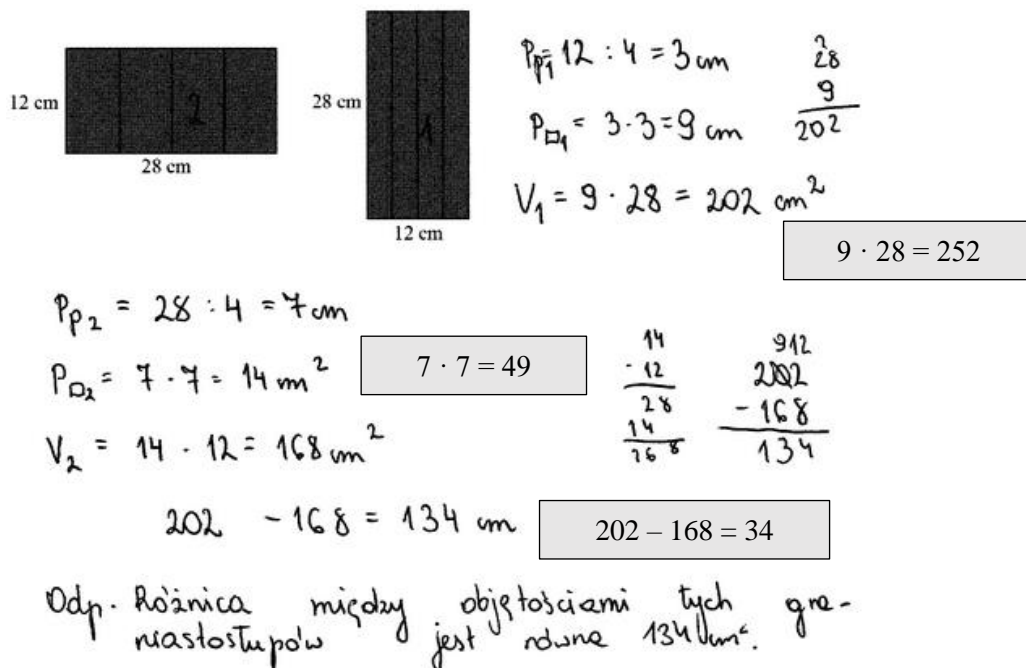 12 cm
2
28 cm
28 cm
1
12 cm
Pp1 = 12 : 4 = 3 cm
P□1 = 3 · 3 = 9 cm
V1 = 9 · 28 = 202 cm²
2
28
9
202
9 · 28 = 252
Pp2 = 28 : 4 = 7 cm
P□2 = 7 · 7 = 14 cm²
7 · 7 = 49
V2 = 14 · 12 = 168 cm²
14
· 12
28
14
168
912
202
- 168
134
202 - 168 = 134 cm
202 – 168 = 34
Odp. Różnica między objętościami tych gra-
niastosłupów jest równa 134 cm².